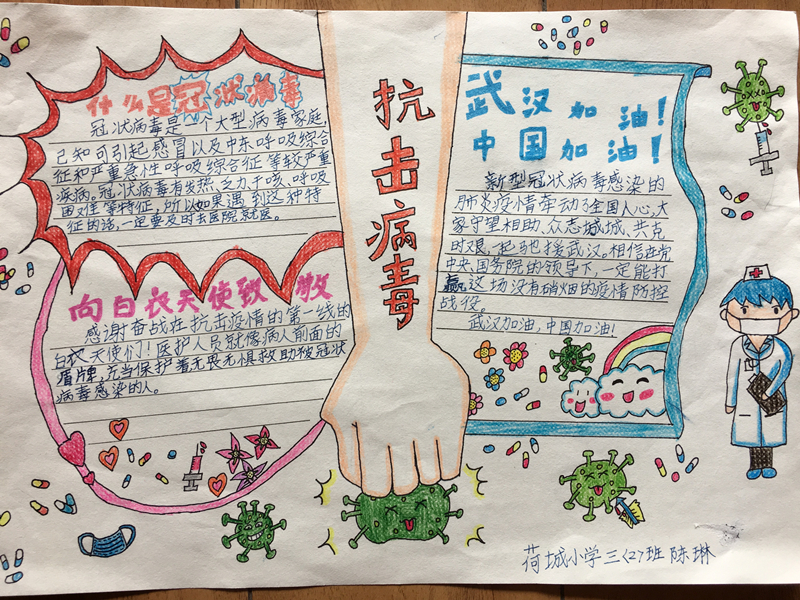 什么是冠状病毒
冠状病毒是一个大型病毒家庭,
已知可引起感冒以及中东呼吸综合
征和严重急性呼吸综合征等较严重
疾病。冠状病毒有发热、乏力、干咳、呼吸
困难等特征,所以如果遇到这种特
征的话,一定要及时去医院就医。
向白衣天使致敬
感谢奋战在抗击疫情的第一线的
白衣天使们!医护人员就像病人前面的
盾牌,充当保护着无畏无惧救助被冠状
病毒感染的人。
抗击病毒
武汉加油!
中国加油!
新型冠状病毒感染的
肺炎疫情牵动了全国人心,大
家守望相助、众志城城、共克
时艰,一起驰援武汉。相信在党
中央、国务院的领导下,一定能打
赢这场没有硝烟的疫情防控
战役。
武汉加油,中国加油!
荷城小学三〈2〉班 陈琳